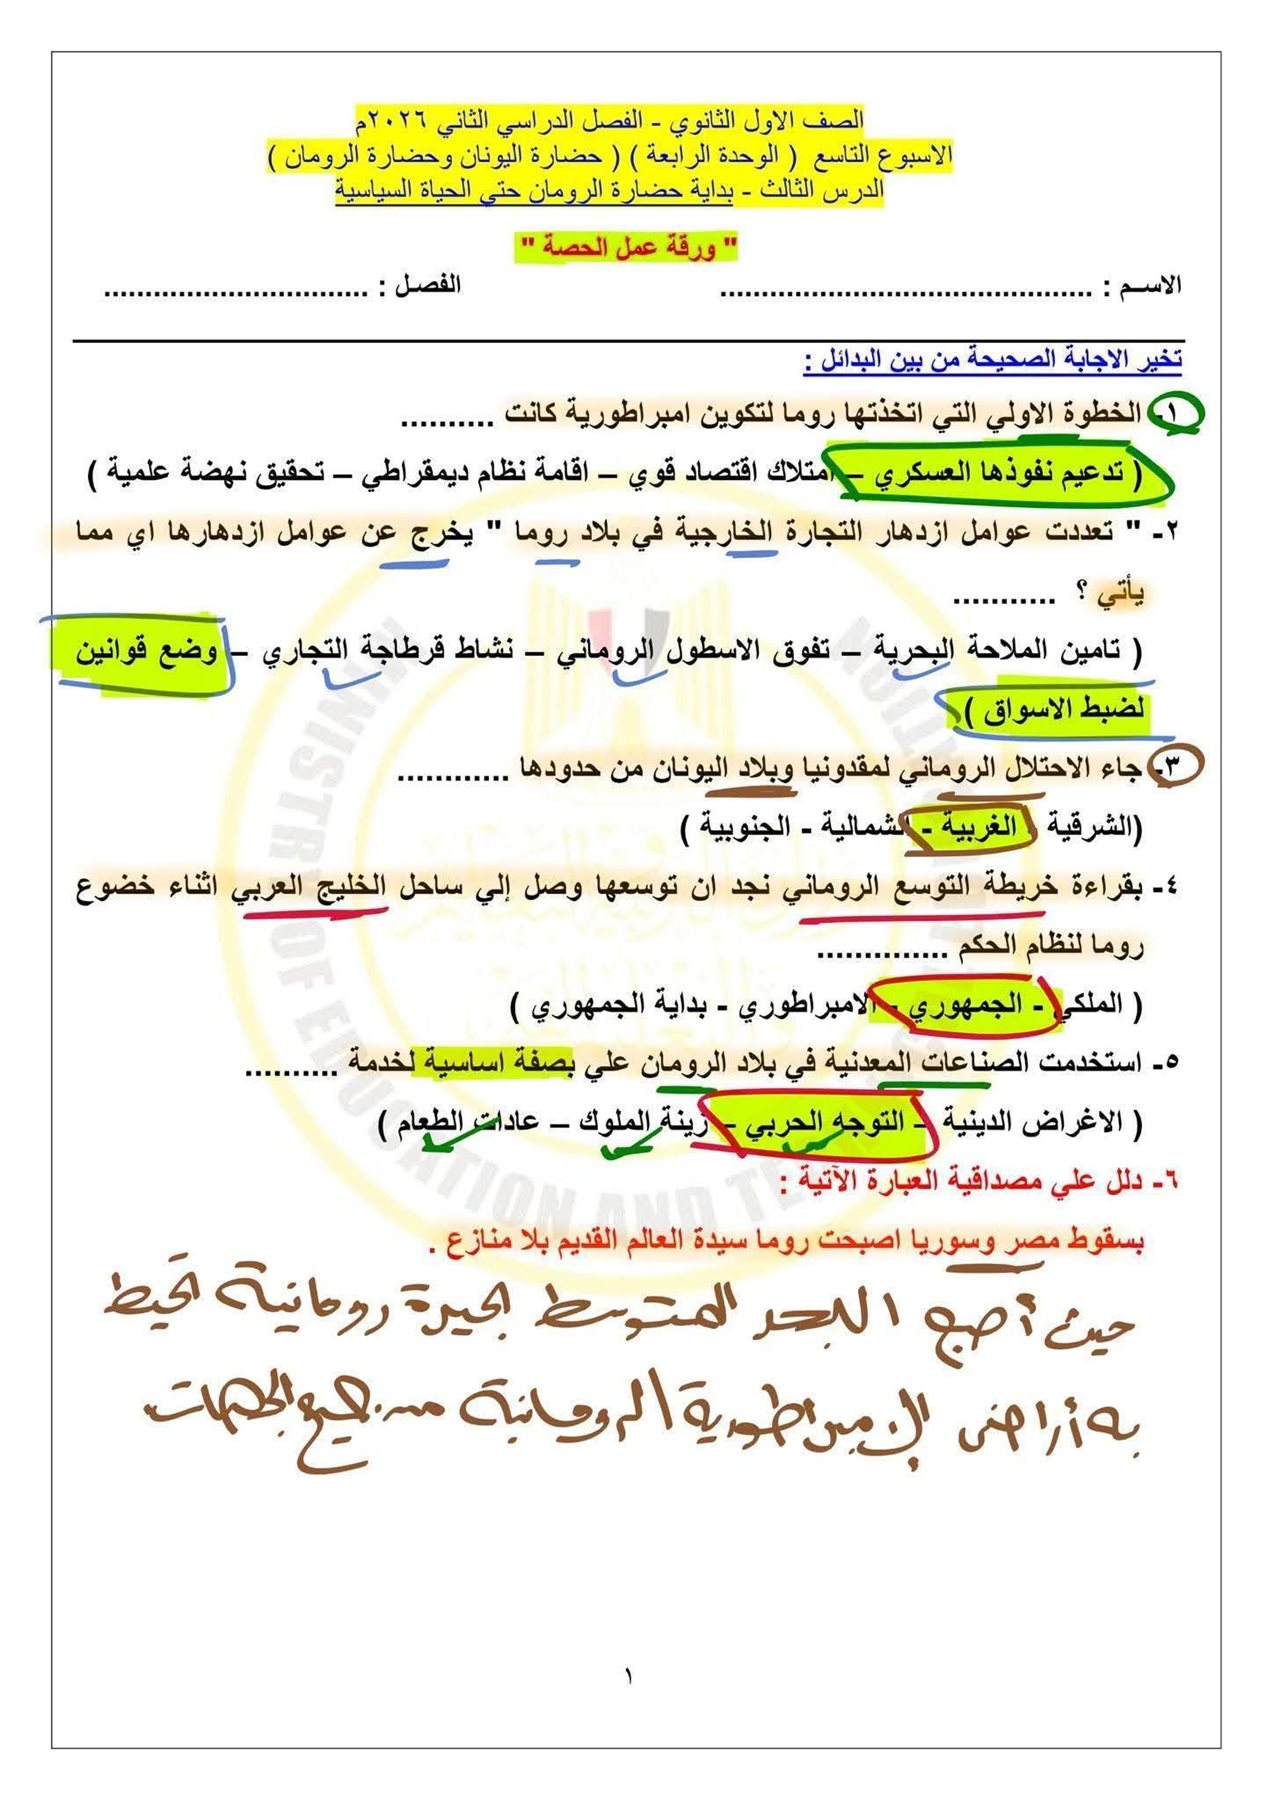 الصف الاول الثانوي - الفصل الدراسي الثاني ٢٠٢٦م
الاسبوع التاسع ( الوحدة الرابعة ) ( حضارة اليونان وحضارة الرومان )
الدرس الثالث - بداية حضارة الرومان حتي الحياة السياسية
" ورقة عمل الحصة "
الاسـم : ............................................. الفصل : ................................
تخير الاجابة الصحيحة من بين البدائل :
١- الخطوة الاولي التي اتخذتها روما لتكوين امبراطورية كانت ..........
( تدعيم نفوذها العسكري – امتلاك اقتصاد قوي – اقامة نظام ديمقراطي – تحقيق نهضة علمية )
٢- " تعددت عوامل ازدهار التجارة الخارجية في بلاد روما " يخرج عن عوامل ازدهارها اي مما
يأتي ؟ ...........
( تامين الملاحة البحرية – تفوق الاسطول الروماني – نشاط قرطاجة التجاري – وضع قوانين
لضبط الاسواق )
٣- جاء الاحتلال الروماني لمقدونيا وبلاد اليونان من حدودها ............
(الشرقية - الغربية - الشمالية - الجنوبية )
٤- بقراءة خريطة التوسع الروماني نجد ان توسعها وصل إلي ساحل الخليج العربي اثناء خضوع
روما لنظام الحكم ..............
( الملكي - الجمهوري - الامبراطوري - بداية الجمهوري )
٥- استخدمت الصناعات المعدنية في بلاد الرومان علي بصفة اساسية لخدمة ..........
( الاغراض الدينية – التوجه الحربي – زينة الملوك – عادات الطعام )
٦- دلل علي مصداقية العبارة الآتية :
بسقوط مصر وسوريا اصبحت روما سيدة العالم القديم بلا منازع .
حيث أصبح البحر المتوسط بحيرة رومانية تحيط
به أراضى الإمبراطورية الرومانية من جميع الجهات
١
MINISTRY OF EDUCATION AND TE